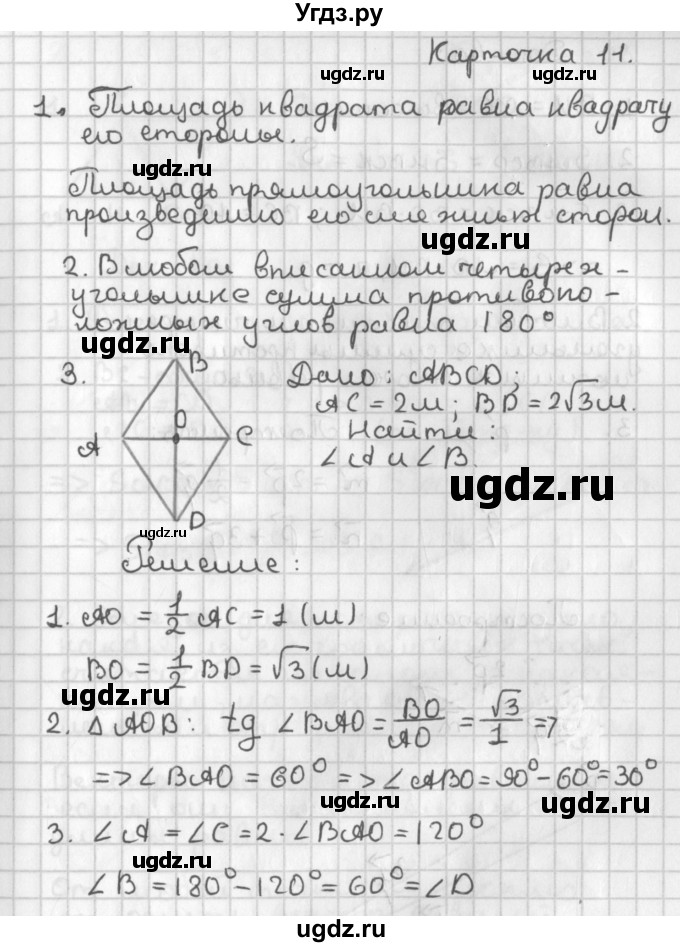 Угдз.ру
Карточка 11.
ugdz.ru
1. Площадь квадрата равна квадрату
его стороны.
ugdz.ru
Площадь прямоугольника равна
произведению его смежных сторон.
ugdz.ru
2. В любом вписанном четырех-
угольнике сумма противопо-
ложных углов равна 180°
ugdz.ru
3. B Дано: ABCD;
AC = 2м; BD = 2√3 м.
O Найти:
A C ∠A и ∠B.
ugdz.ru
D
ugdz.ru
Решение:
1. AO = 1/2 AC = 1 (м)
BO = 1/2 BD = √3 (м)
ugdz.ru
2. △AOB: tg ∠BAO = BO/AO = √3/1 =>
=> ∠BAO = 60° => ∠ABO = 90° - 60° = 30°
ugdz.ru
ugdz.ru
3. ∠A = ∠C = 2 · ∠BAO = 120°
ugdz.ru
∠B = 180° - 120° = 60° = ∠D
ugdz.ru
ugdz.ru